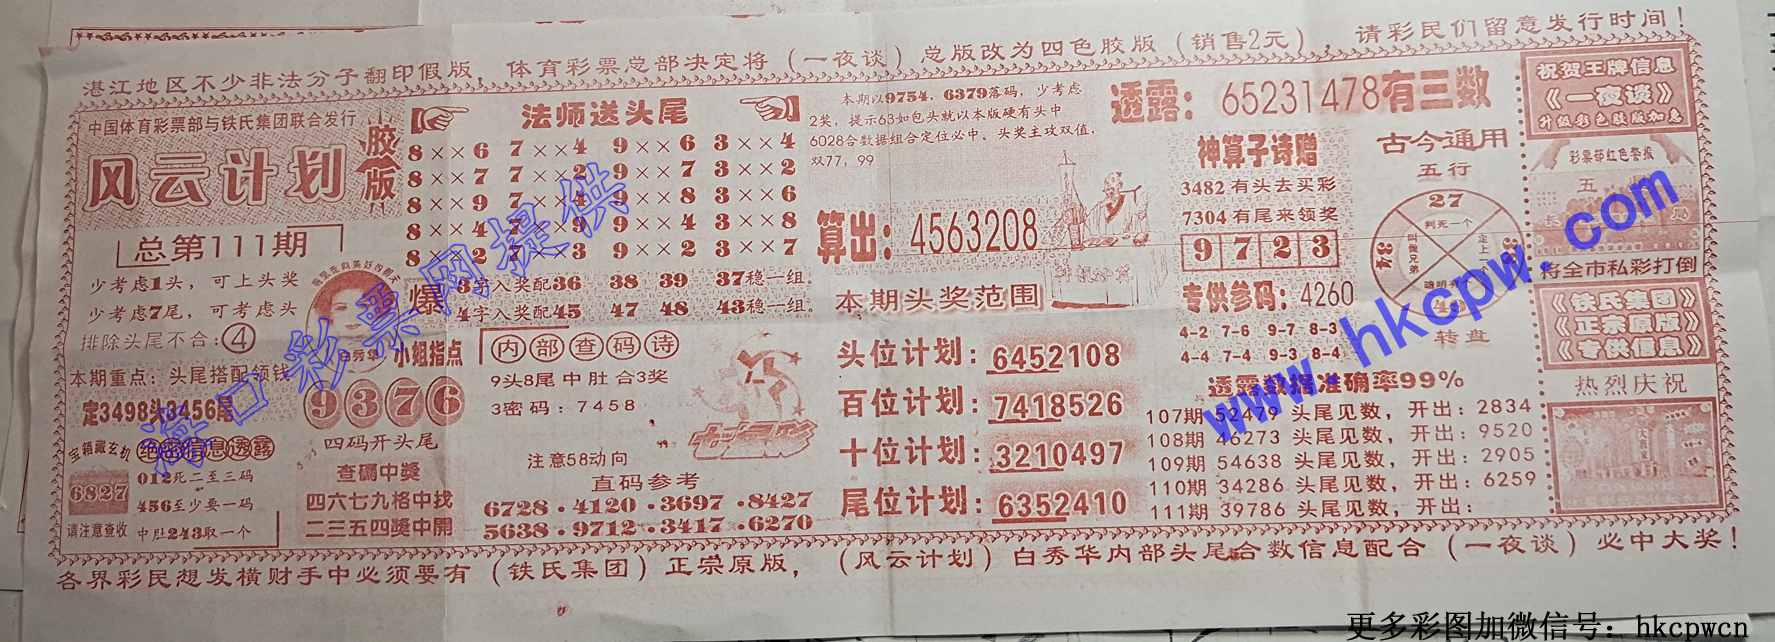 湛江地区不少非法分子翻印假版，体育彩票总部决定将（一夜谈）总版改为四色胶版（销售2元），请彩民们留意发行时间！
中国体育彩票部与铁氏集团联合发行
风云计划
胶版
总第111期
少考虑1头，可上头奖
少考虑7尾，可考虑头
排除头尾不合：④
本期重点：头尾搭配领钱
定3498头3456尾
宝箱藏玄机
绝密信息透露
6827
请注意查收
012死二至三码
456至少要一码
中肚243取一个
白秀华
小姐指点
9376
四码开头尾
查码中奖
四六七九格中找
二三五四獎中開
法师送头尾
8××6 7××4 9××6 3××4
8××7 7××2 9××7 3××2
8××9 7××4 9××8 3××6
8××4 7××9 9××4 3××8
8××2 7××3 9××2 3××7
爆
3字入奖配36 38 39 37稳一组。
4字入奖配45 47 48 43稳一组。
内部查码诗
9头8尾中肚合3奖
3密码：7458
注意58动向
七星彩
直码参考
6728.4120.3697.8427
5638.9712.3417.6270
本期以9754，6379落码，少考虑
2奖，提示63如包头就以本版硬有头中
6028合数据组合定位必中、头奖主攻双值，
双77，99
算出：4563208
本期头奖范围
头位计划：6452108
百位计划：7418526
十位计划：3210497
尾位计划：6352410
透露：65231478有三数
神算子诗赠
3482有头去买彩
7304有尾来领奖
9723
专供参码：4260
4-2 7-6 9-7 8-3
4-4 7-4 9-3 8-4
古今通用
五行
27
判死一个
34
43
转盘
透露数据准确率99%
107期 52479 头尾见数，开出：2834
108期 46273 头尾见数，开出：9520
109期 54638 头尾见数，开出：2905
110期 34286 头尾见数，开出：6259
111期 39786 头尾见数，开出：
祝贺王牌信息
《一夜谈》
升级彩色胶版加急
彩票部红色警报
将全市私彩打倒
《铁氏集团》
《正宗原版》
《专供信息》
热烈庆祝
各界彩民想发横财手中必须要有（铁氏集团）正宗原版，（风云计划）白秀华内部头尾合数信息配合（一夜谈）必中大奖！
海口彩票网提供
www.hkcpw.com
更多彩图加微信号：hkcpwcn